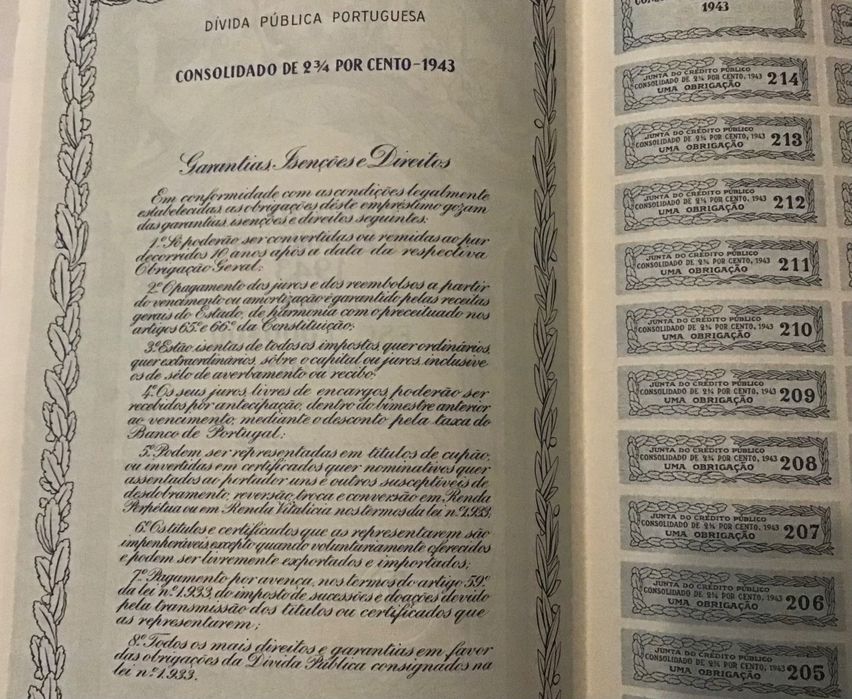 DÍVIDA PÚBLICA PORTUGUESA
CONSOLIDADO DE 2¾ POR CENTO–1943
Garantias, Isenções e Direitos
Em conformidade com as condições legalmente
estabelecidas, as obrigações dêste empréstimo gozam
das garantias, isenções e direitos seguintes:
1.º Só poderão ser convertidas ou remidas ao par
decorridos 10 anos após a data da respectiva
Obrigação Geral;
2.º O pagamento dos juros e dos reembolsos a partir
do vencimento ou amortização é garantido pelas receitas
gerais do Estado, de harmonia com o preceituado nos
artigos 65.º e 66.º da Constituição;
3.º Estão isentas de todos os impostos, quer ordinários,
quer extraordinários, sôbre o capital ou juros, inclusive
os de sêlo de averbamento ou recibo;
4.º Os seus juros, livres de encargos, poderão ser
recebidos por antecipação, dentro do bimestre anterior
ao vencimento, mediante o desconto pela taxa do
Banco de Portugal;
5.º Podem ser representadas em títulos de cupão,
ou invertidas em certificados quer nominativos quer
assentados ao portador uns e outros susceptíveis de
desdobramento, reversão, troca e conversão em Renda
Perpétua ou em Renda Vitalícia nos termos da lei n.º 1.933;
6.º Os títulos e certificados que as representarem são
impenhoráveis, excepto quando voluntariamente oferecidos
e podem ser livremente exportados e importados;
7.º Pagamento por avença, nos termos do artigo 59.º
da lei n.º 1.933, do imposto de sucessões e doações devido
pela transmissão dos títulos ou certificados que
as representarem;
8.º Todos os mais direitos e garantias em favor
das obrigações da Dívida Pública consignados na
lei n.º 1.933.
1943
JUNTA DO CRÉDITO PÚBLICO
CONSOLIDADO DE 2¾ POR CENTO, 1943
UMA OBRIGAÇÃO 214
JUNTA DO CRÉDITO PÚBLICO
CONSOLIDADO DE 2¾ POR CENTO, 1943
UMA OBRIGAÇÃO 213
JUNTA DO CRÉDITO PÚBLICO
CONSOLIDADO DE 2¾ POR CENTO, 1943
UMA OBRIGAÇÃO 212
JUNTA DO CRÉDITO PÚBLICO
CONSOLIDADO DE 2¾ POR CENTO, 1943
UMA OBRIGAÇÃO 211
JUNTA DO CRÉDITO PÚBLICO
CONSOLIDADO DE 2¾ POR CENTO, 1943
UMA OBRIGAÇÃO 210
JUNTA DO CRÉDITO PÚBLICO
CONSOLIDADO DE 2¾ POR CENTO, 1943
UMA OBRIGAÇÃO 209
JUNTA DO CRÉDITO PÚBLICO
CONSOLIDADO DE 2¾ POR CENTO, 1943
UMA OBRIGAÇÃO 208
JUNTA DO CRÉDITO PÚBLICO
CONSOLIDADO DE 2¾ POR CENTO, 1943
UMA OBRIGAÇÃO 207
JUNTA DO CRÉDITO PÚBLICO
CONSOLIDADO DE 2¾ POR CENTO, 1943
UMA OBRIGAÇÃO 206
JUNTA DO CRÉDITO PÚBLICO
CONSOLIDADO DE 2¾ POR CENTO, 1943
UMA OBRIGAÇÃO 205